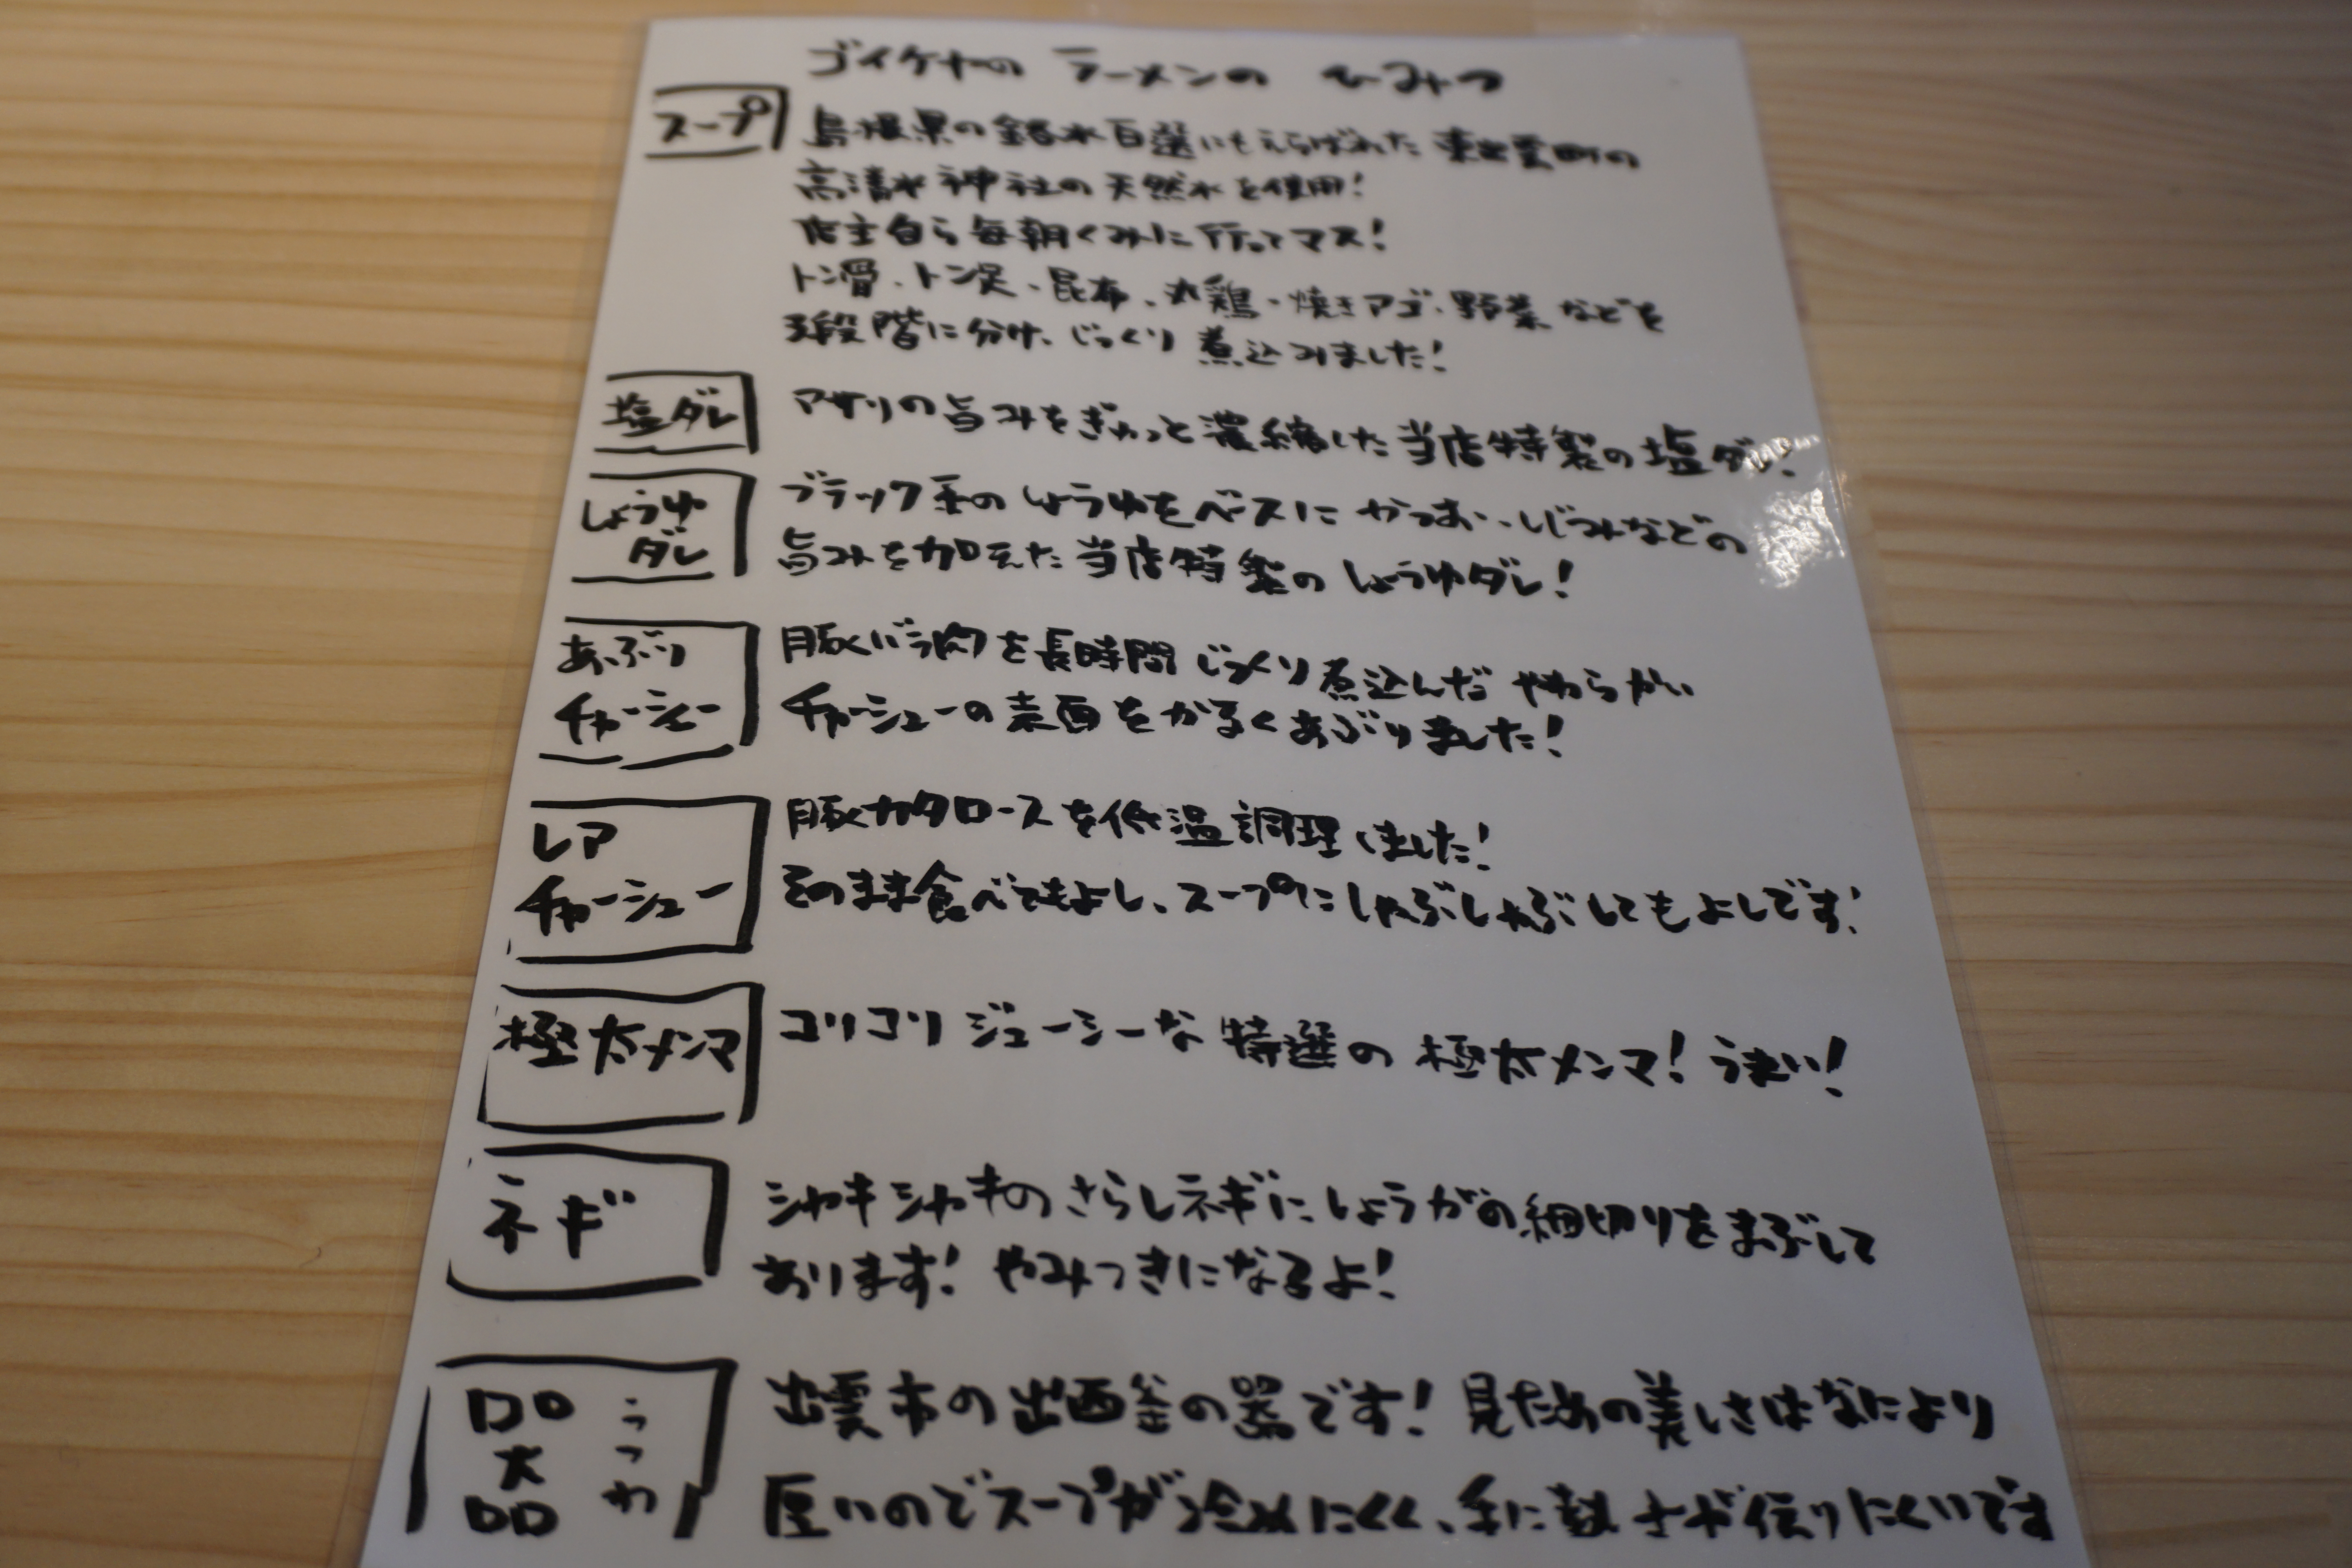 ゴイケヤの ラーメンの ひみつ
スープ
島根県の銘水百選にもえらばれた 東出雲町の
高清水神社の天然水を使用!
店主自ら毎朝くみに行ってマス!
トン骨、トン足、昆布、丸鶏、焼きアゴ、野菜などを
3段階に分け、じっくり煮込みました!
塩ダレ
アサリの旨みをぎゅっと濃縮した当店特製の塩ダレ!
しょうゆ
ダレ
ブラック系のしょうゆをベースにかつお、しじみなどの
旨みを加えた当店特製のしょうゆダレ!
あぶり
チャーシュー
豚バラ肉を長時間じっくり煮込んだやわらかい
チャーシューの表面をかるくあぶりました!
レア
チャーシュー
豚カタロースを低温調理しました!
そのまま食べてもよし、スープにしゃぶしゃぶしてもよしです!
極太メンマ
コリコリジューシーな特選の極太メンマ!うまい!
ネギ
シャキシャキのさらしネギにしょうがの細切りをまぶして
あります!やみつきになるよ!
器 うつわ
出雲市の出西釜の器です!見ための美しさはなにより
厚いのでスープが冷めにくく、手に熱さが伝りにくいです